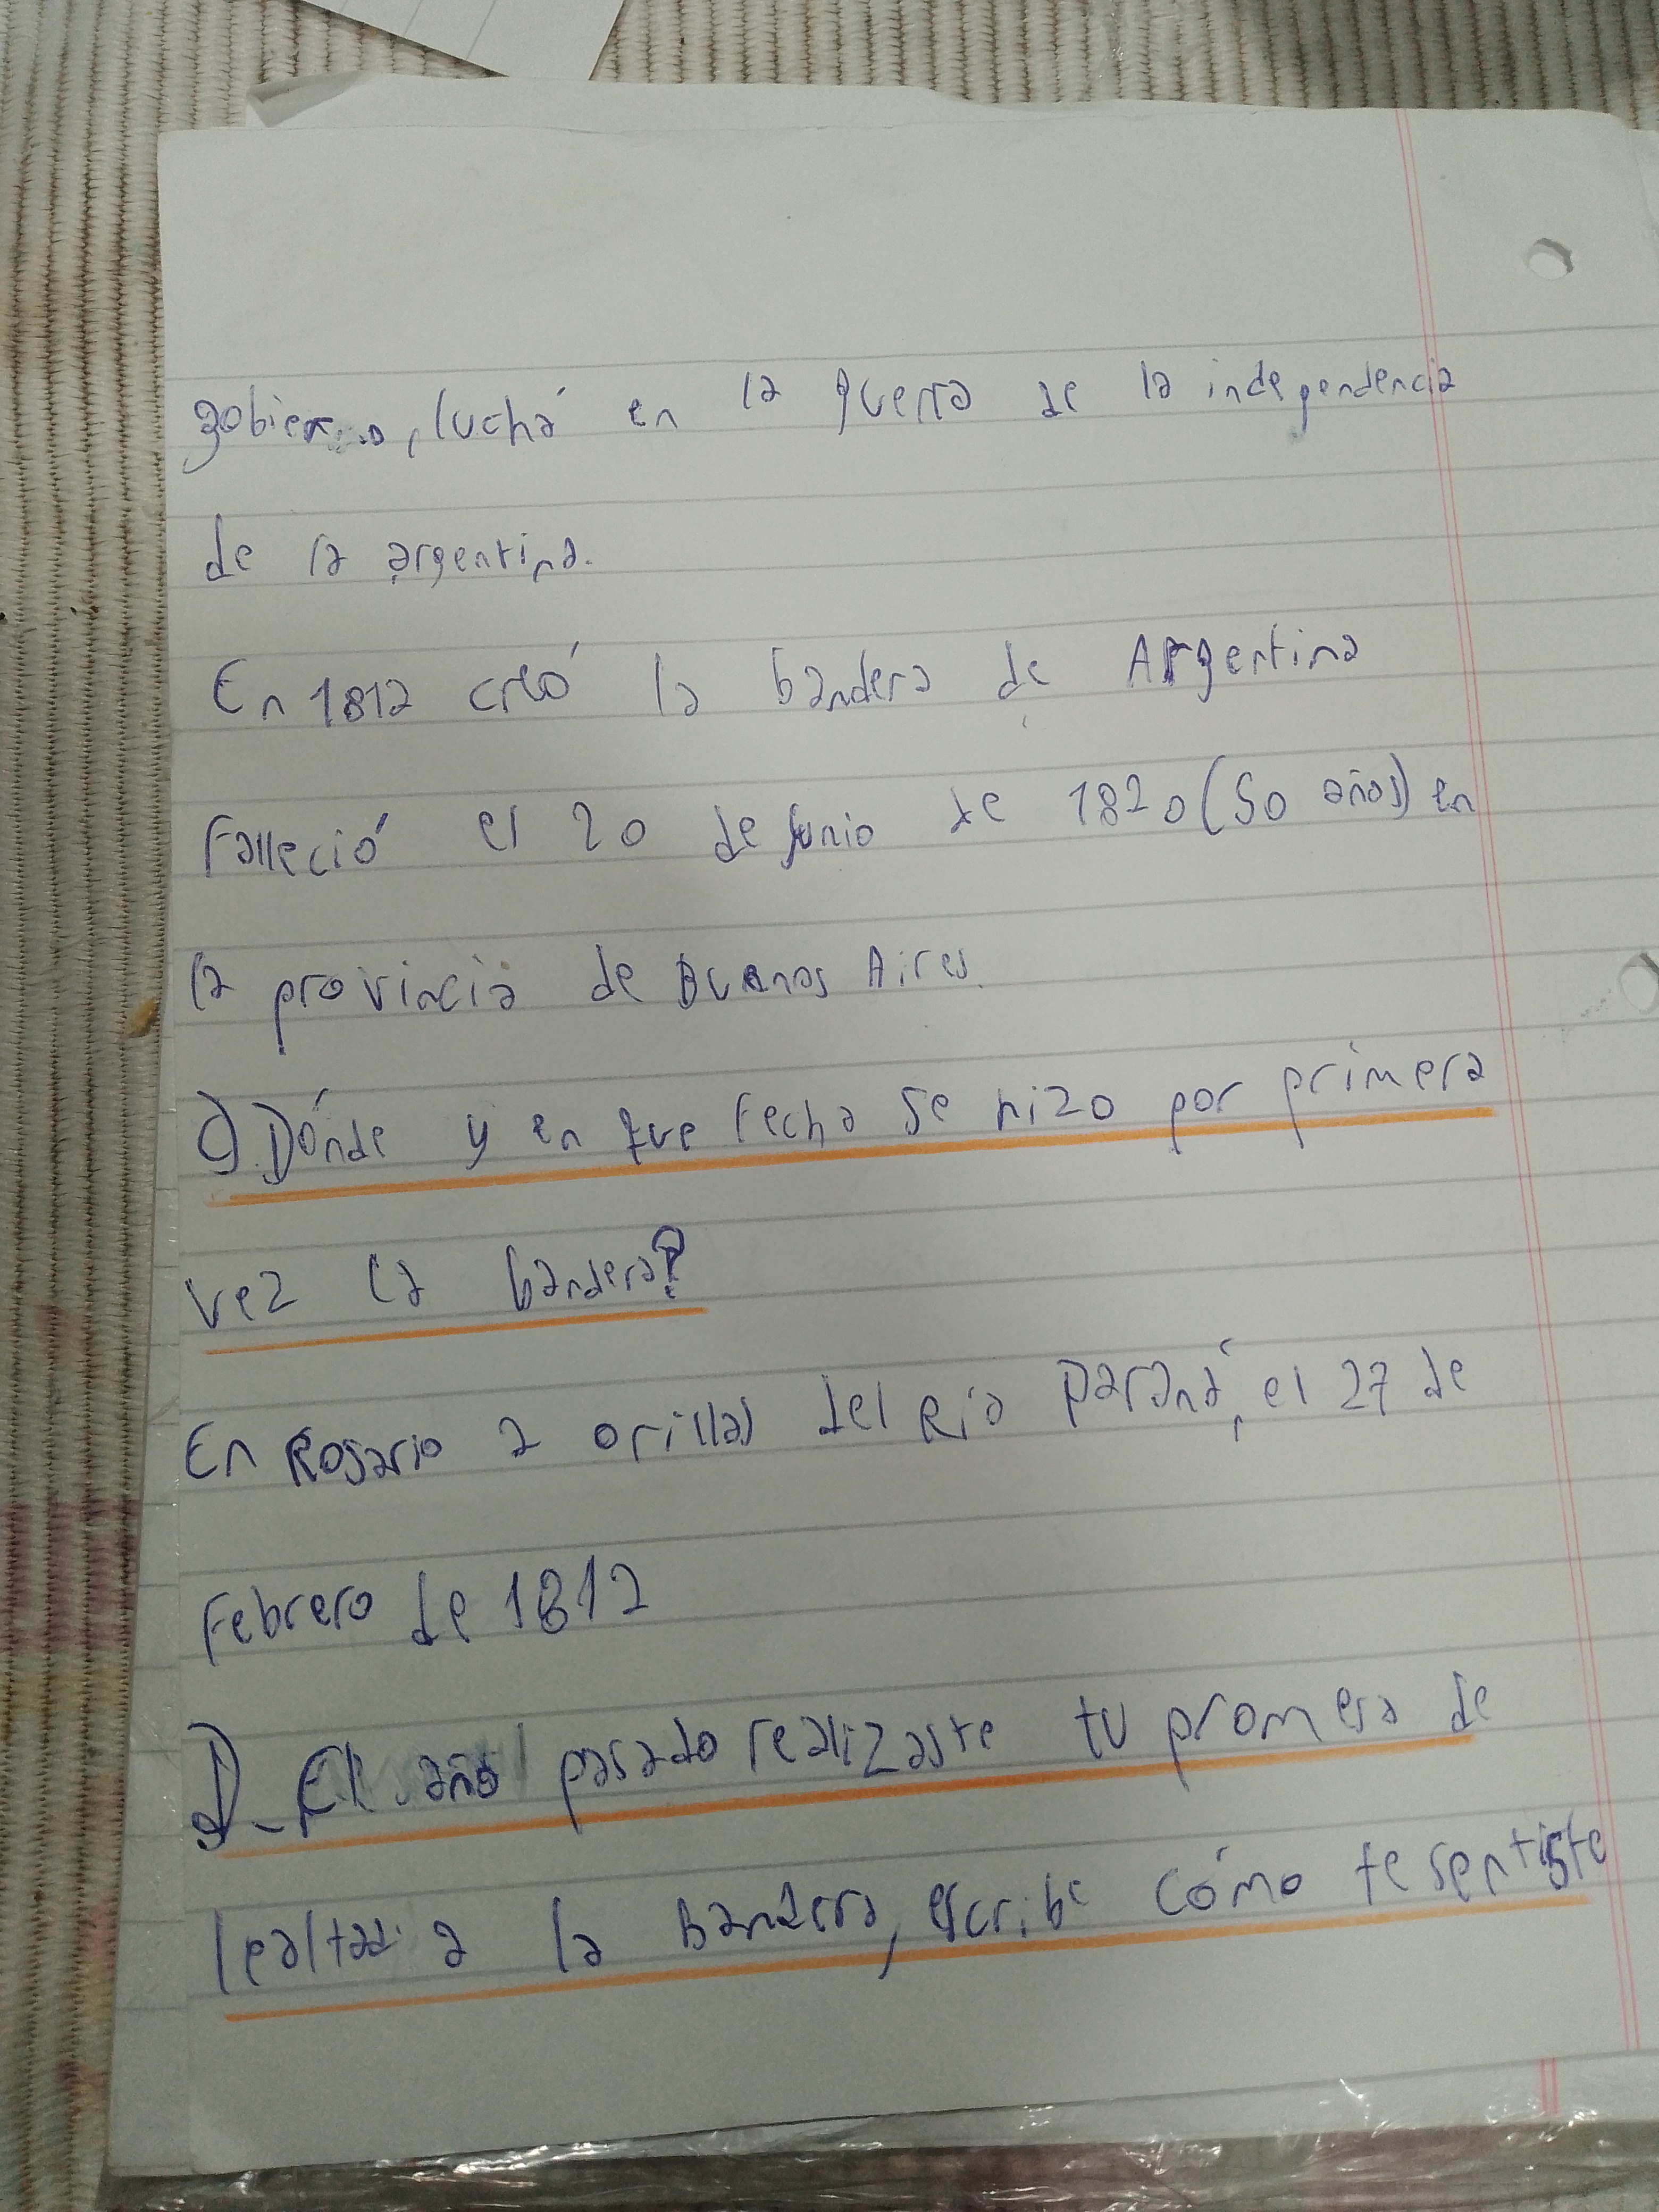 gobierno, luchó en la guerra de la independencia
de la argentina.
En 1812 creó la bandera de Argentina
Falleció el 20 de Junio de 1820 (50 años) en
la provincia de Buenos Aires.
C) Dónde y en que fecha se hizo por primera
vez la bandera?
En Rosario a orillas del Río Paraná, el 27 de
Febrero de 1812
D_ El año pasado realizaste tu promesa de
lealtad a la bandera, escribe cómo te sentiste